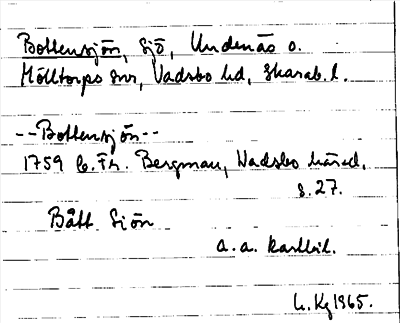 Bottensjön, sjö, Undenäs o.
Mölltorps snr, Vadsbo hd, Skarab. l.
--Bottensjön--
1759 C. Fr. Bergman, Wadsbo härad,
s. 27.
Bått. Siön
a. a. kartbil.
1965.